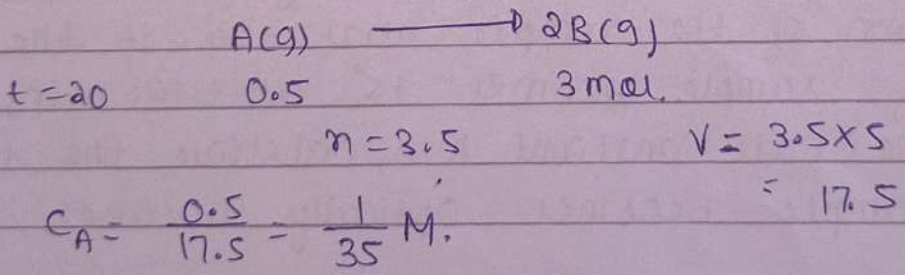 A(g) ⟶ 2B(g)
t=20 0.5 3 mol.
n = 3.5 V = 3.5×5
= 17.5
C_A = 0.5/17.5 = 1/35 M.